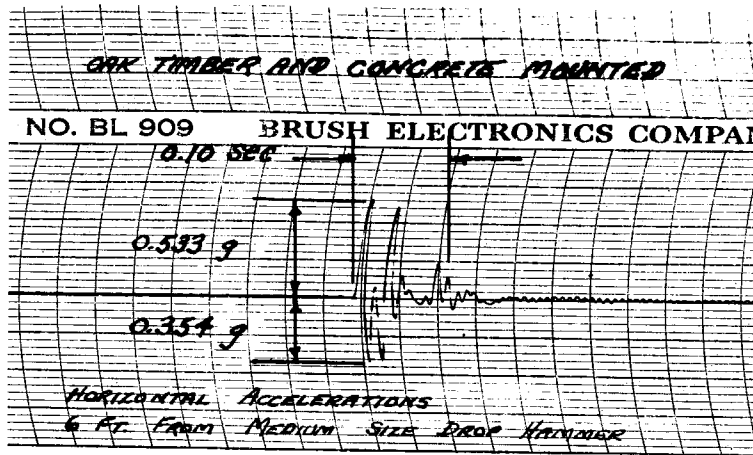 OAK TIMBER AND CONCRETE MOUNTED
NO. BL 909 BRUSH ELECTRONICS COMPAN
0.10 SEC
0.533 g
0.354 g
HORIZONTAL ACCELERATIONS
6 FT. FROM MEDIUM SIZE DROP HAMMER